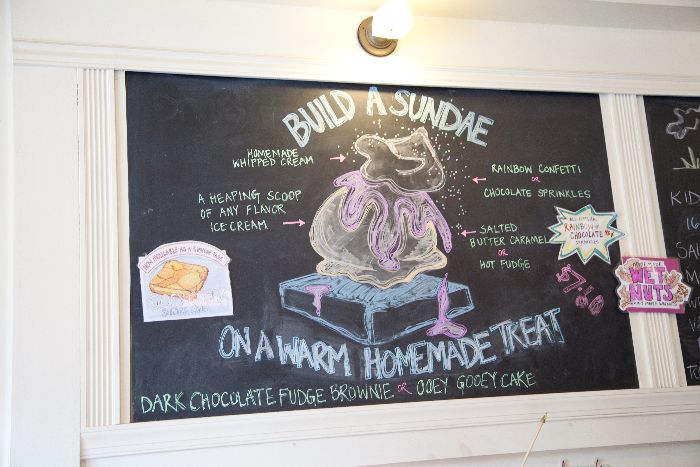 BUILD A SUNDAE
HOMEMADE
WHIPPED CREAM
RAINBOW CONFETTI
OR
CHOCOLATE SPRINKLES
A HEAPING SCOOP
OF ANY FLAVOR
ICE CREAM
SALTED
BUTTER CARAMEL
OR
HOT FUDGE
ON A WARM HOMEMADE TREAT
DARK CHOCOLATE FUDGE BROWNIE OR OOEY GOOEY CAKE
NOW AVAILABLE AS A SUNDAE
ALL NATURAL
RAINBOW OR
CHOCOLATE
SPRINKLES
WET
NUTS
KID
16